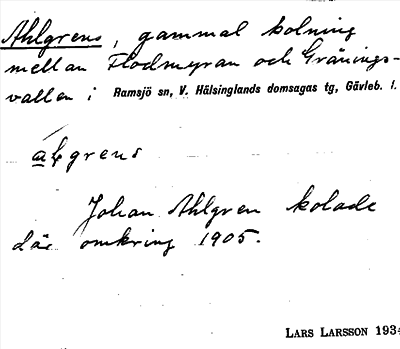 Ahlgrens, gammal kolning
mellan Flodmyran och Gränings-
vallen i Ramsjö sn, V. Hälsinglands domsagas tg, Gävleb. l.
algrens
Johan Ahlgren kolade
där omkring 1905.
LARS LARSSON 1934